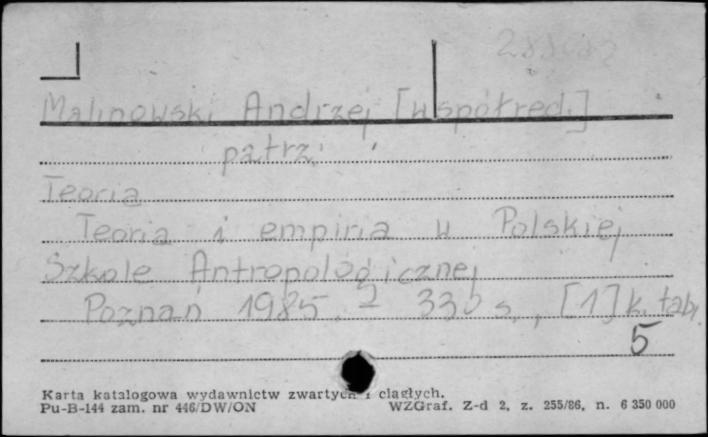 Malinowski Andrzej [współred.]
patrz:
Teoria
Teoria i empiria w Polskiej
Szkole Antropologicznej
Poznań 1985. 2 330 s., [1] k. tabl.
5
Karta katalogowa wydawnictw zwartych i ciągłych.
Pu-B-144 zam. nr 446/DW/ON WZGraf. Z-d 2, z. 255/86, n. 6 350 000